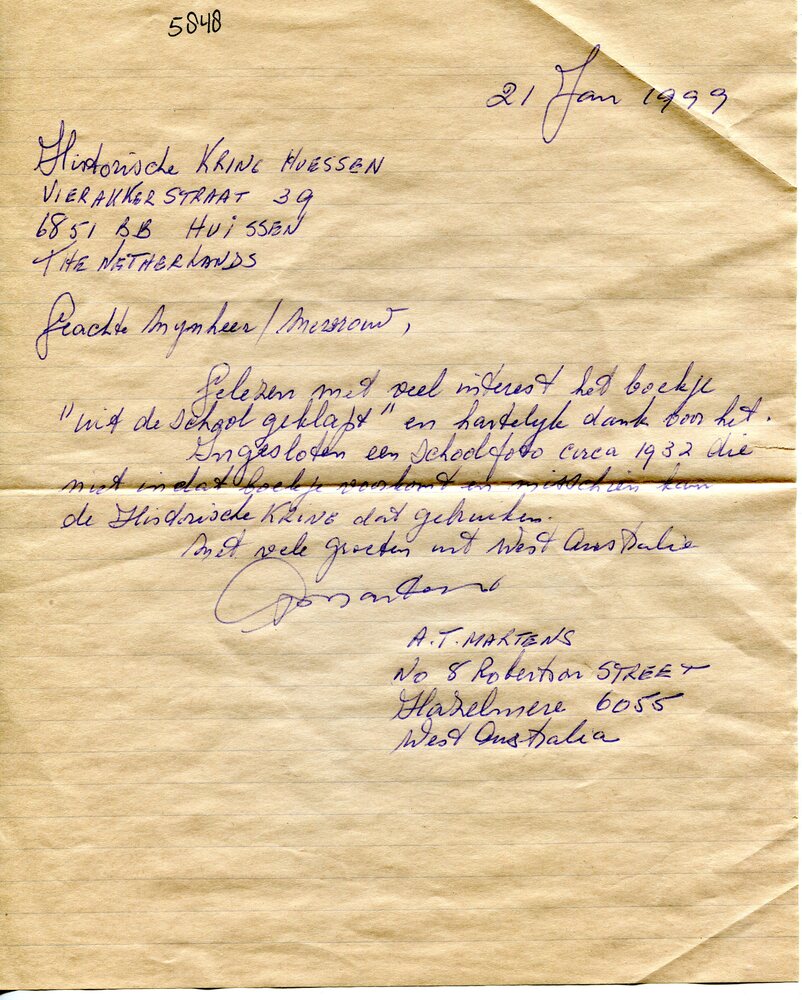 5848
21 Jan 1999
Historische KRING HUESSEN
VIERAKKERSTRAAT 39
6851 BB HUiSSEN
THE NETHERLANDS
Geachte Mynheer/Mevrouw,
Gelezen met veel interest het boekje
"uit de school geklapt" en hartelyk dank voor het.
Ingesloten een schoolfoto circa 1932 die
niet in dat boekje voorkomt en misschien kan
de Historische KRING dat gebruiken.
Met vele groeten uit West Australie
A.T. MARTENS
No 8 Robertson STREET
Hazelmere 6055
West Australia